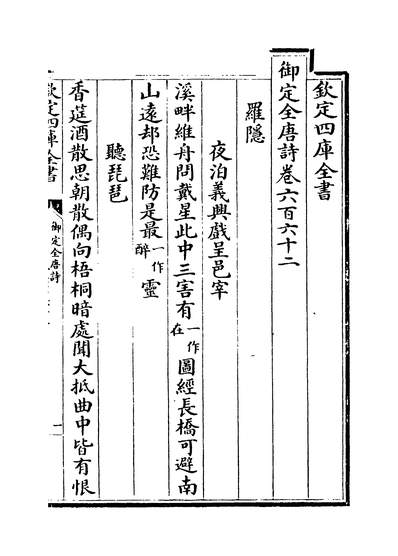 欽定四庫全書
御定全唐詩卷六百六十二
羅隱
夜泊義興戲呈邑宰
溪畔維舟問戴星此中三害有一作在圖經長橋可避南
山遠却恐難防是最一作醉靈
聽琵琶
香莚酒散思朝散偶向梧桐暗處聞大抵曲中皆有恨
欽定四庫全書
御定全唐詩